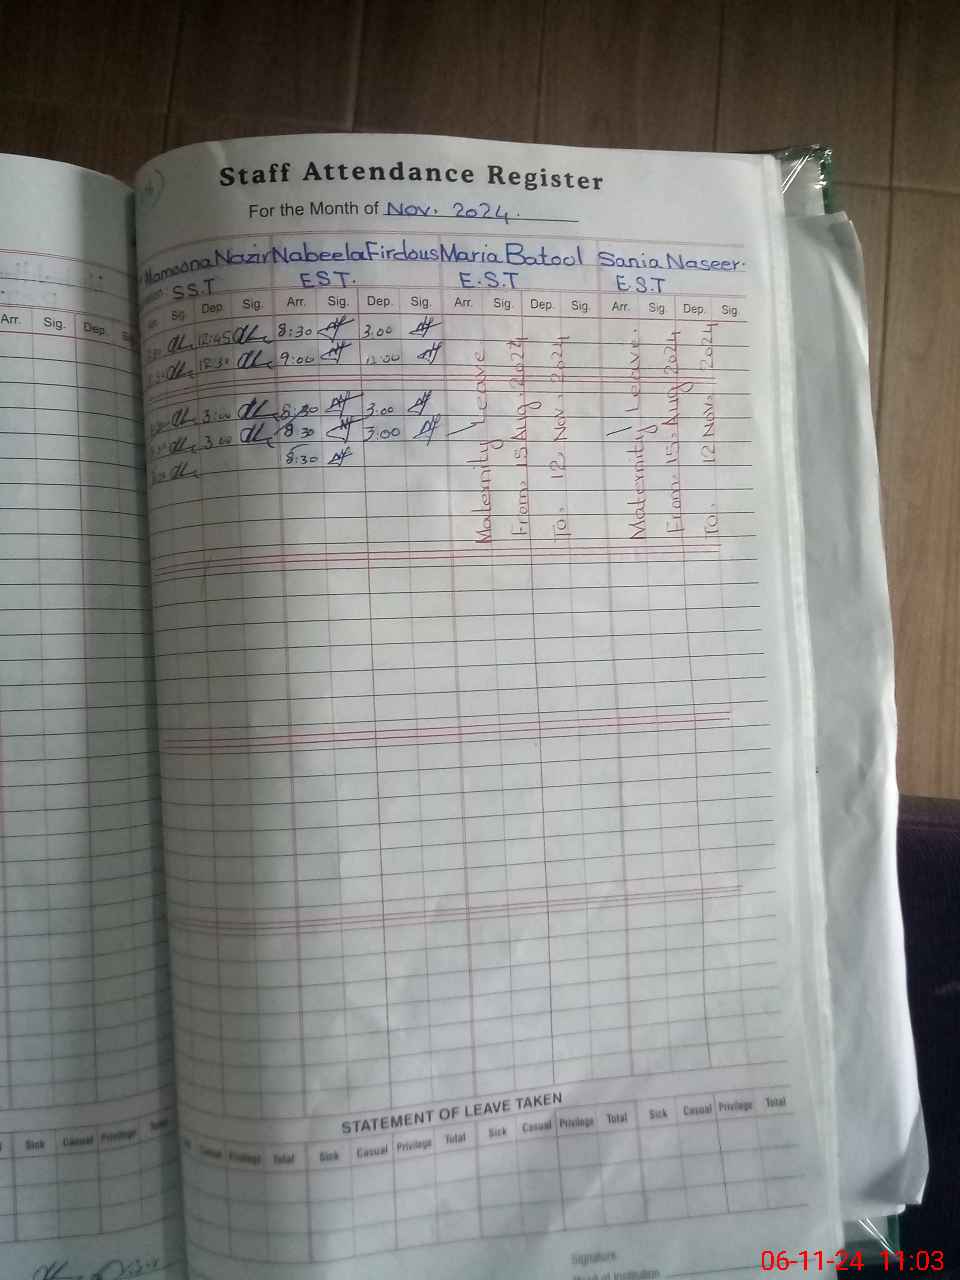 Staff Attendance Register
For the Month of Nov. 2024.
Mamoona Nazir Nabeela Firdous Maria Batool Sania Naseer.
SS.T EST. E.S.T E.S.T
Arr. Sig. Dep. Sig. Dep. Sig. Arr. Sig. Dep. Sig. Arr. Sig. Dep. Sig. Arr. Sig. Dep. Sig.
12:45 8:30 3.00
12:30 9:00 12:00
3:00 8:30 3.00
3:00 8:30 3:00
8:30
Maternity Leave
From. 15 Aug. 2024
To. 12 Nov. 2024
Maternity Leave.
From. 15. Aug 2024
To. 12 Nov. 2024
STATEMENT OF LEAVE TAKEN
Sick Casual Privilege Total Casual Privilege Total Sick Casual Privilege Total Sick Casual Privilege Total Sick Casual Privilege Total
Signature
Head of Institution
06-11-24 11:03